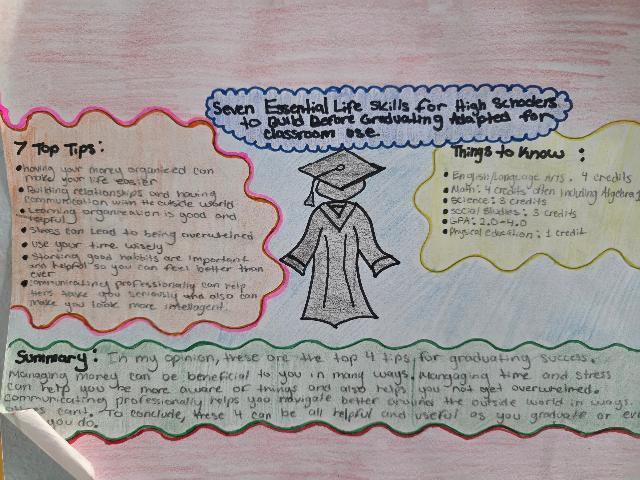 Seven Essential Life Skills for High Schoolers
to Build Before Graduating Adapted for
classroom use.
7 Top Tips:
• having your money organized can
make your life easier
• Building relationships and having
communication with the outside world
• Learning organization is good and
helpful
• Stress can lead to being overwhelmed
• use your time wisely
• Starting good habbits are important
and helpful so you can feel better than
ever
• communicating professionally can help
take you seriously and also can
make you look more intellegent.
Things to Know:
• English/Language Arts. 4 credits
• Math: 4 credits often including Algebra 1
• Science: 3 credits
• Social Studies: 3 credits
• GPA: 2.0-4.0
• Physical education: 1 credit
Summary: In my opinion, these are the top 4 tips for graduating success.
Managing money can be beneficial to you in many ways. Managing time and stress
can help you be more aware of things and also helps you not get overwelmed.
communicating professionally helps you navigate better around the outside world in ways
cant. To conclude, these 4 can be all helpful and useful as you graduate or
you do.